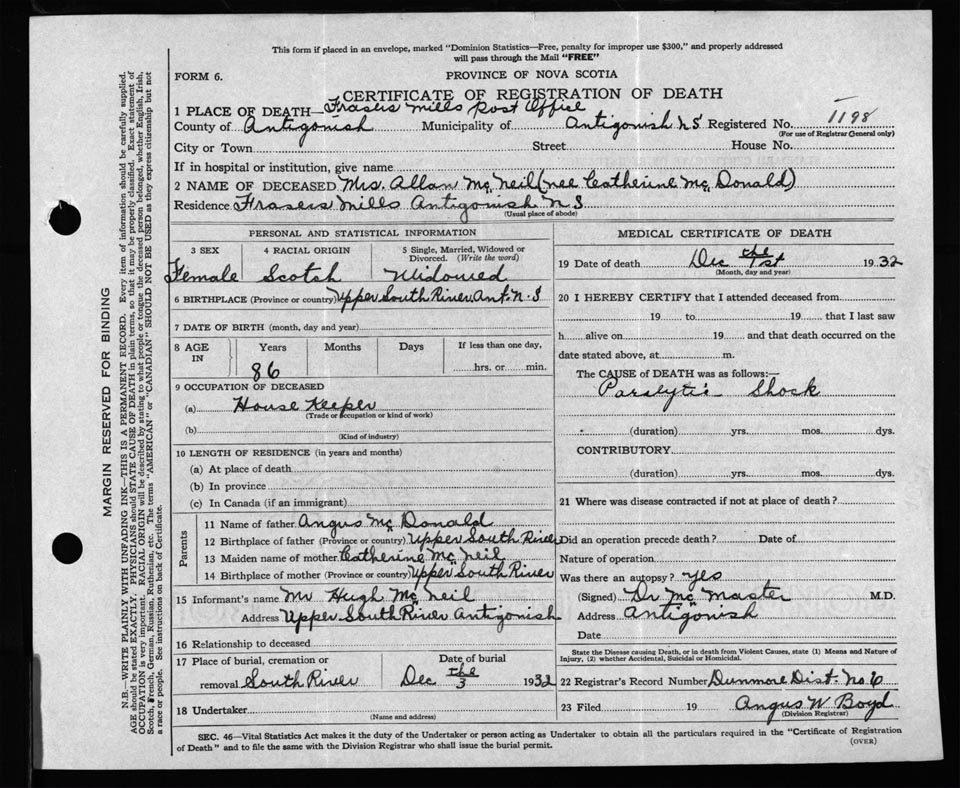 This form if placed in an envelope, marked "Dominion Statistics—Free, penalty for improper use $300," and properly addressed
will pass through the Mail "FREE"
FORM 6.
PROVINCE OF NOVA SCOTIA
CERTIFICATE OF REGISTRATION OF DEATH
1 PLACE OF DEATH—Frasers Mills Post Office
County of Antigonish Municipality of Antigonish N S Registered No. 1198
(For use of Registrar General only)
City or Town Street House No.
If in hospital or institution, give name
2 NAME OF DECEASED Mrs. Allan Mc Neil (nee Catherine Mc Donald)
Residence Frasers Mills Antigonish N S
(Usual place of abode)
PERSONAL AND STATISTICAL INFORMATION
3 SEX 4 RACIAL ORIGIN 5 Single, Married, Widowed or Divorced. (Write the word)
Female Scotch Widowed
6 BIRTHPLACE (Province or country) Upper South River Ant. N. S
7 DATE OF BIRTH (month, day and year)
8 AGE IN Years Months Days If less than one day,
86 hrs. or min.
9 OCCUPATION OF DECEASED
(a) House Keeper
(Trade or occupation or kind of work)
(b)
(Kind of industry)
10 LENGTH OF RESIDENCE (in years and months)
(a) At place of death
(b) In province
(c) In Canada (if an immigrant)
Parents
11 Name of father Angus Mc Donald
12 Birthplace of father (Province or country) Upper South River
13 Maiden name of mother Catherine Mc Neil
14 Birthplace of mother (Province or country) Upper South River
15 Informant's name Mr Hugh Mc Neil
Address Upper South River Antigonish
16 Relationship to deceased
17 Place of burial, cremation or Date of burial
removal South River Dec the 3 1932
18 Undertaker
(Name and address)
MEDICAL CERTIFICATE OF DEATH
19 Date of death Dec the 1st 1932
(Month, day and year)
20 I HEREBY CERTIFY that I attended deceased from
19 to 19 that I last saw
h alive on 19 and that death occurred on the
date stated above, at m.
The CAUSE of DEATH was as follows:—
Paralytic Shock
(duration) yrs. mos. dys.
CONTRIBUTORY
(duration) yrs. mos. dys.
21 Where was disease contracted if not at place of death?
Did an operation precede death? Date of
Nature of operation
Was there an autopsy? yes
(Signed) Dr Mc Master M.D.
Address Antigonish
Date
State the Disease causing Death, or in death from Violent Causes, state (1) Means and Nature of
Injury, (2) whether Accidental, Suicidal or Homicidal.
22 Registrar's Record Number Dunmore Dist. No 6
23 Filed 19 Angus W Boyd
(Division Registrar)
SEC. 46—Vital Statistics Act makes it the duty of the Undertaker or person acting as Undertaker to obtain all the particulars required in the "Certificate of Registration
of Death" and to file the same with the Division Registrar who shall issue the burial permit.
(OVER)
MARGIN RESERVED FOR BINDING
N.B.—WRITE PLAINLY WITH UNFADING INK—THIS IS A PERMANENT RECORD. Every item of information should be carefully supplied.
AGE should be stated EXACTLY. PHYSICIANS should STATE CAUSE OF DEATH in plain terms, so that it may be properly classified. Exact statement of
OCCUPATION is very important. RACIAL ORIGIN will be described by stating to what people or tongue the deceased person belonged, whether English, Irish,
Scotch, French, German, Russian, Ruthenian, etc. The terms "AMERICAN" or "CANADIAN" SHOULD NOT BE USED as they express citizenship but not
a race or people. See instructions on back of Certificate.